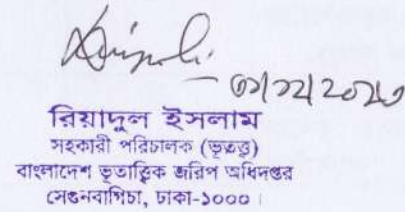 রিয়াদুল ইসলাম
সহকারী পরিচালক (ভূতত্ত্ব)
বাংলাদেশ ভূতাত্ত্বিক জরিপ অধিদপ্তর
সেগুনবাগিচা, ঢাকা-১০০০।